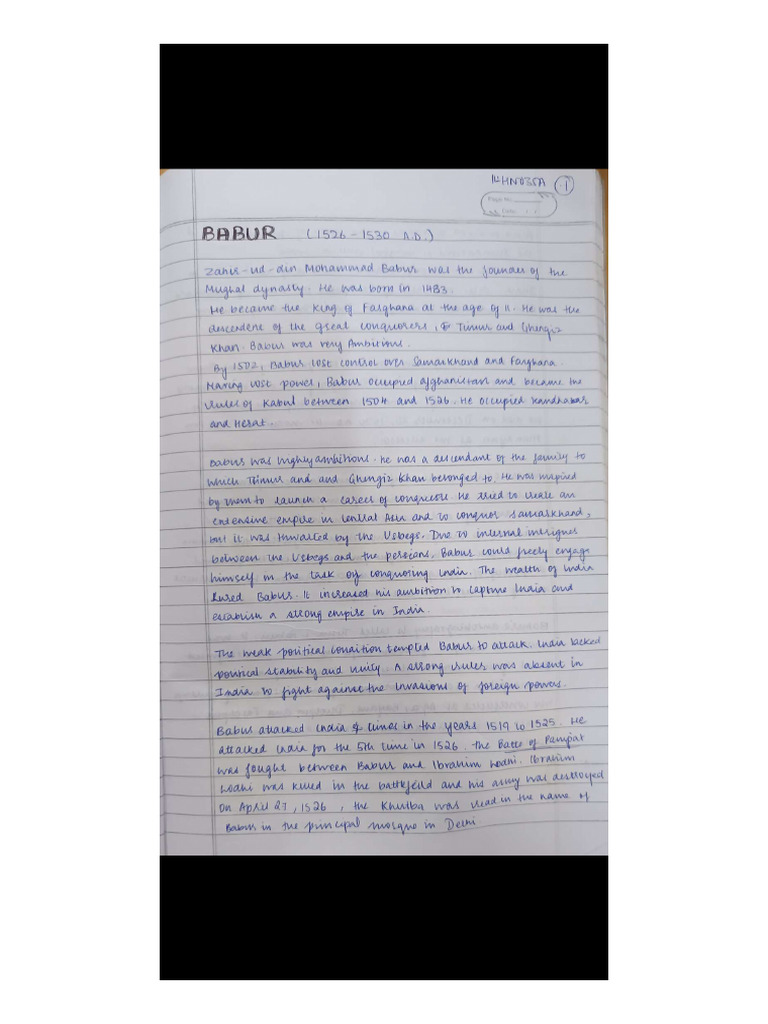 1
Page No.
Date
BABUR (1526 - 1530 A.D.)
Zahir-ud-din Mohammad Babur was the founder of the
Mughal dynasty. He was born in 1483.
He became the King of Farghana at the age of 11. He was the
descendent of the great conquerors, Timur and Ghengiz
Khan. Babur was very Ambitious.
By 1502, Babur lost control over Samarkhand and Farghana.
Having lost power, Babur occupied Afghanistan and became the
Ruler of Kabul between 1504 and 1526. He occupied Kandhahar
and Herat.
Babur was highly ambitious. he was a descendant of the family to
which Timur and and Ghengiz Khan belonged to. He was inspired
by them to launch a career of conqueror. He tried to create an
extensive empire in Central Asia and to conquor Samarkhand,
but it was thwarted by the Uzbegs. Due to internal intrigues
between the Uzbegs and the persians, Babur could freely engage
himself in the task of conquoring India. The wealth of India
lured Babur. It increased his ambition to capture India and
establish a strong empire in India.
The weak political condition tempted Babur to attack. India lacked
political stability and unity. A strong ruler was absent in
India to fight against the invasions of foreign powers.
Babur attacked India 4 times in the years 1519 to 1525. He
attacked India for the 5th time in 1526. The Battle of Panipat
was fought between Babur and Ibrahim Lodhi. Ibrahim
Lodhi was killed in the battlefeild and his army was destroyed
On April 27, 1526, the Khutba was read in the name of
Babur in the principal mosque in Delhi